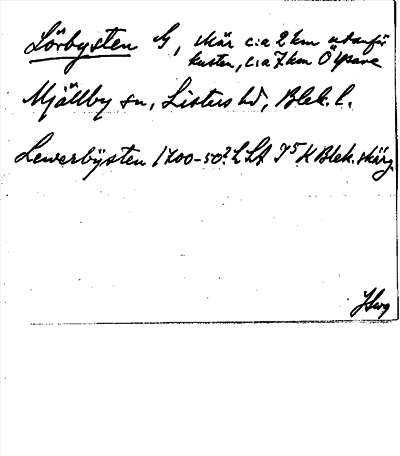 Lörbysten G, skär c:a 2 km utanför
kusten, c:a 7 km Ö Ysane
Mjällby sn, Listers hd, Blek. l.
Lewerbÿsten 1700-50? L LA I5 K Blek. skärg.